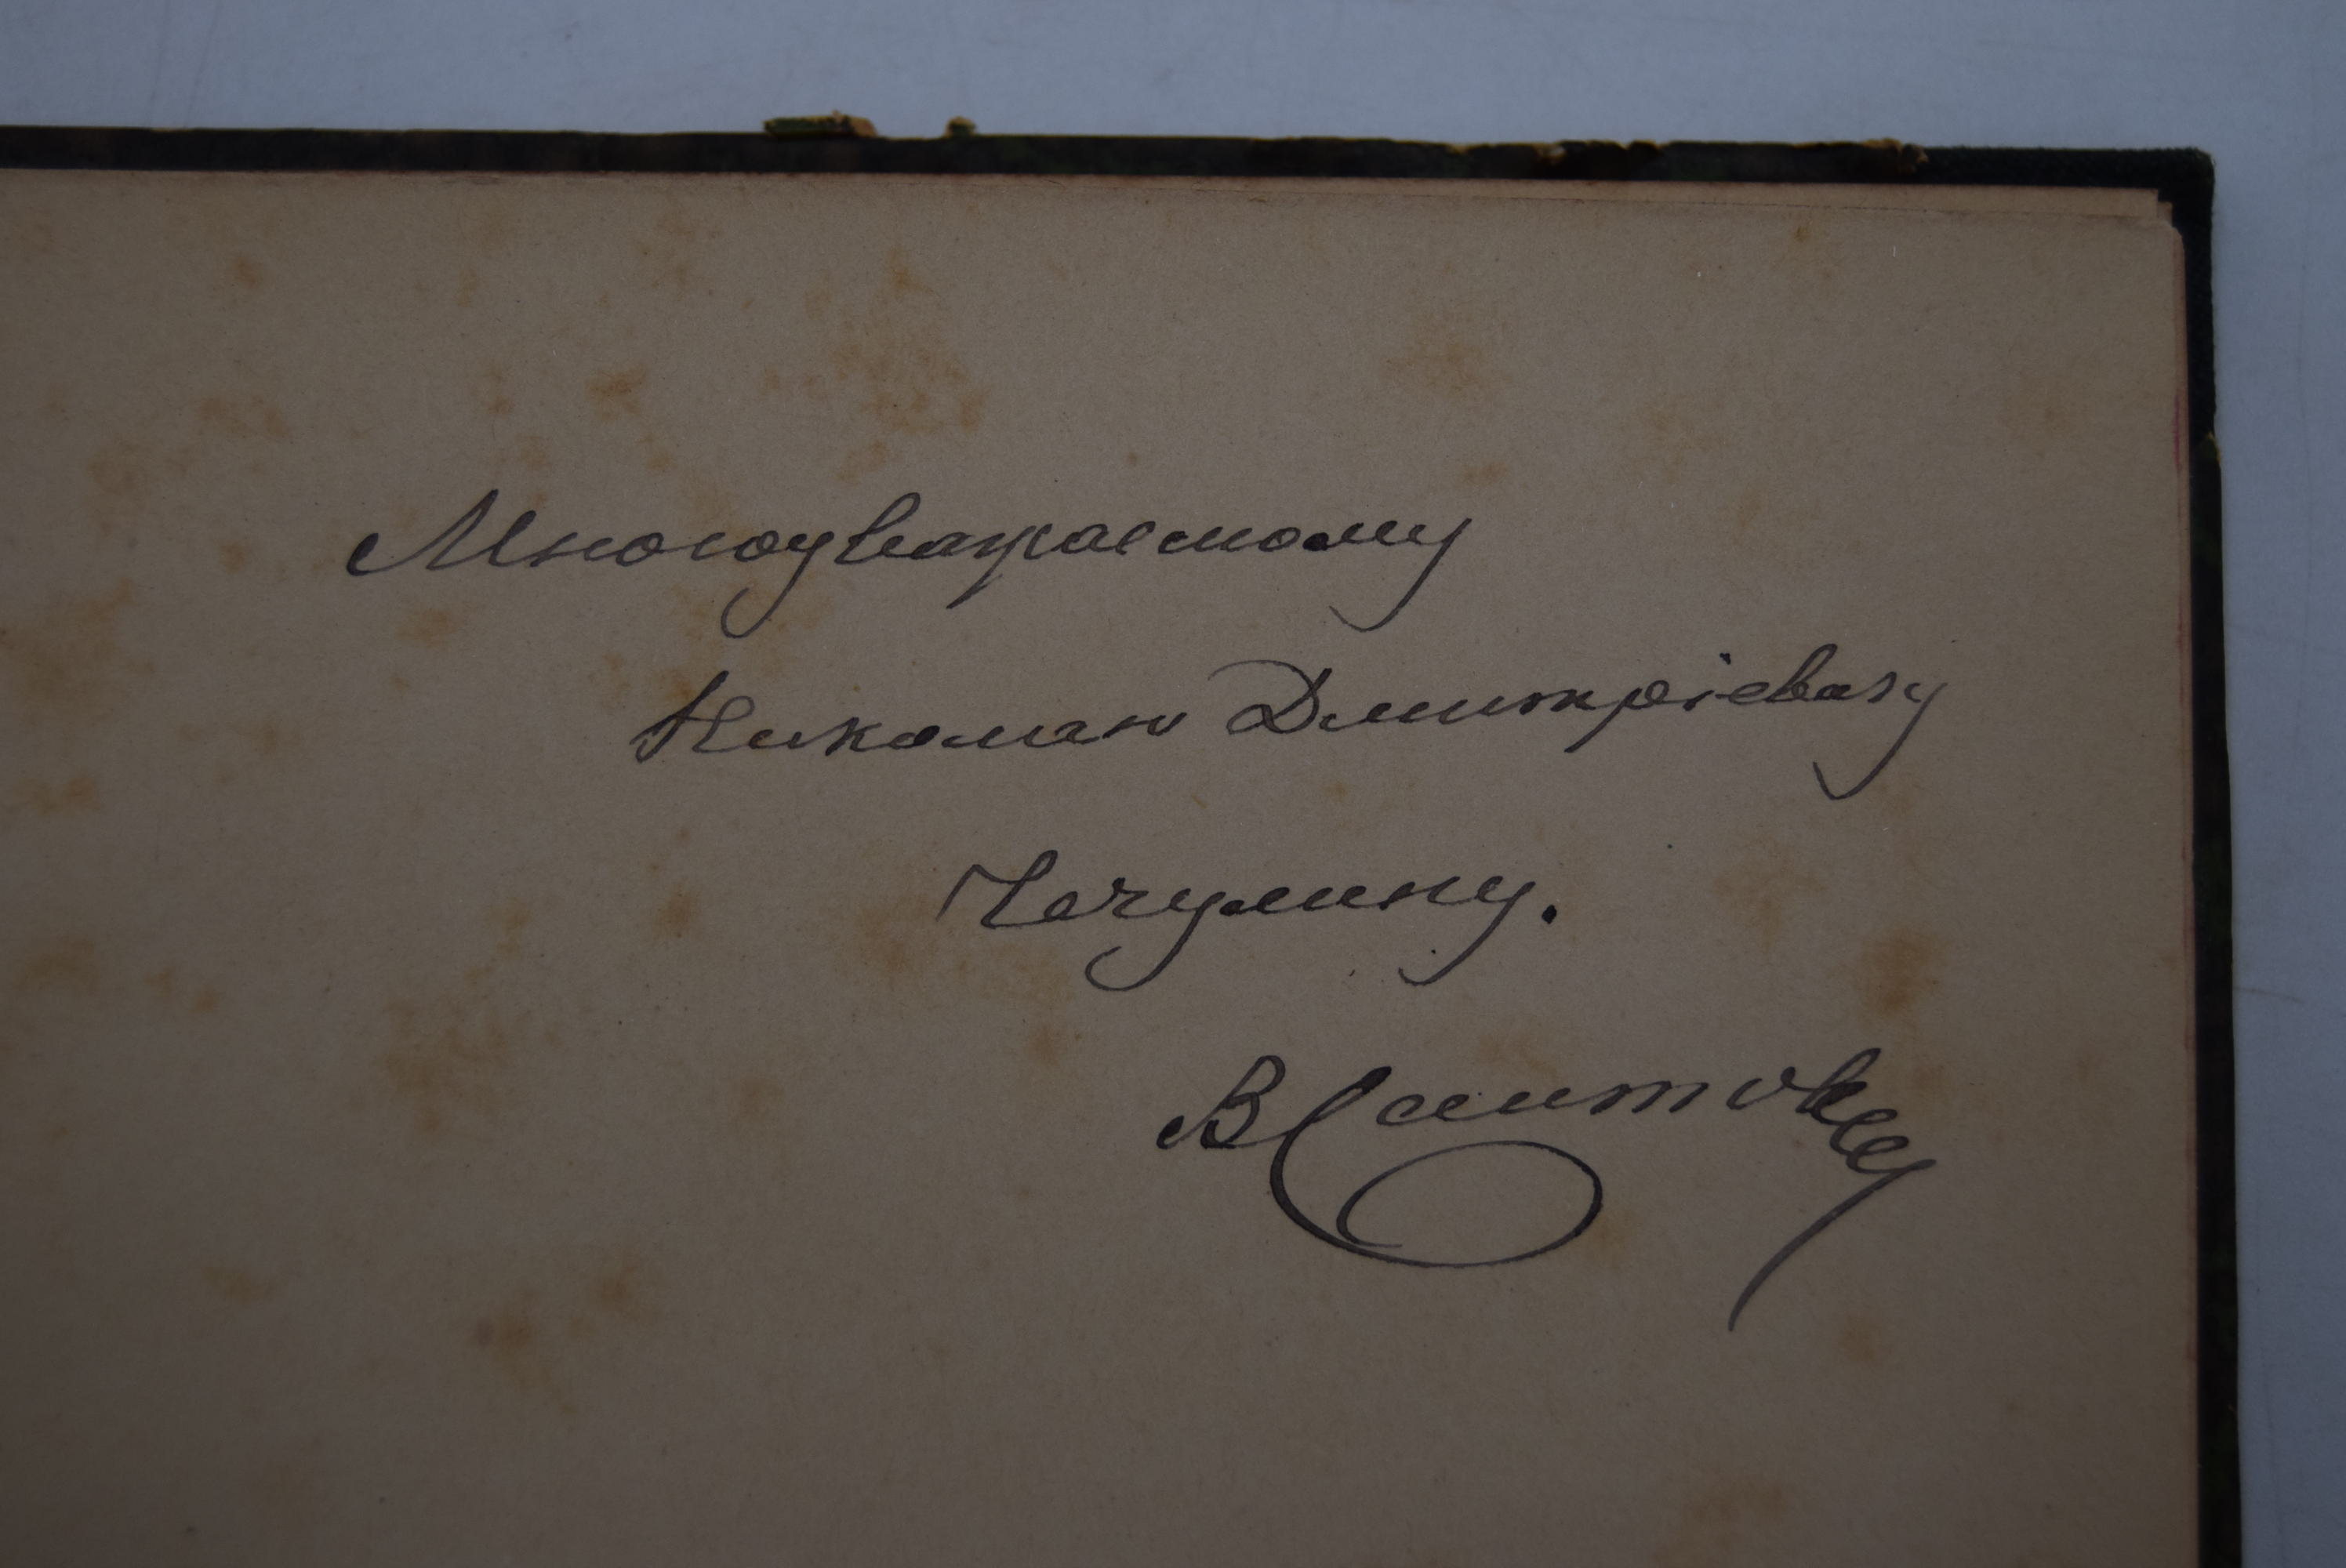 Многоуважаемому
Николаю Дмитріевичу
Чечулину.
В Саитовъ